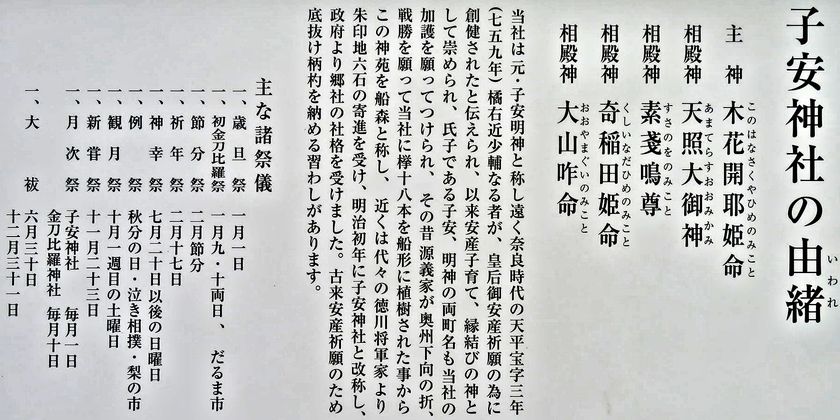 子安神社の由緒
いわれ
主神 木花開耶姫命
このはなさくやひめのみこと
相殿神 天照大御神
あまてらすおおみかみ
相殿神 素戔嗚尊
すさのをのみこと
相殿神 奇稲田姫命
くしいなだひめのみこと
相殿神 大山咋命
おおやまぐいのみこと
当社は元・子安明神と称し遠く奈良時代の天平宝字三年
(七五九年)橘右近少輔なる者が、皇后御安産祈願の為に
創健されたと伝えられ、以来安産子育て、縁結びの神と
して崇められ、氏子である子安、明神の両町名も当社の
加護を願ってつけられ、その昔源義家が奥州下向の折、
戦勝を願って当社に欅十八本を船形に植樹された事から
この神苑を船森と称し、近くは代々の徳川将軍家より
朱印地六石の寄進を受け、明治初年に子安神社と改称し、
政府より郷社の社格を受けました。古来安産祈願のため
底抜け柄杓を納める習わしがあります。
主な諸祭儀
一、歳旦祭 一月一日
一、初金刀比羅祭 一月九・十両日、だるま市
一、節分祭 二月節分
一、祈年祭 二月十七日
一、神幸祭 七月二十日以後の日曜日
一、例祭 秋分の日・泣き相撲・梨の市
一、観月祭 十月一週目の土曜日
一、新嘗祭 十一月二十三日
一、月次祭 子安神社 毎月一日
金刀比羅神社 毎月十日
一、大祓 六月三十日
十二月三十一日